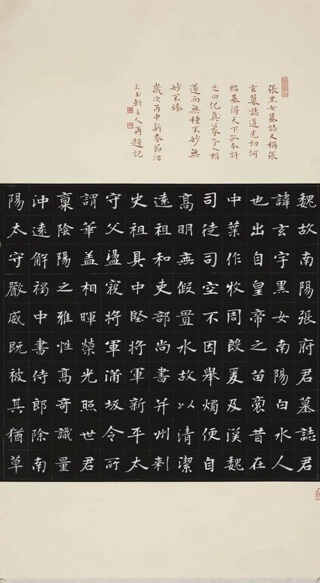 張黑女墓誌又稱張
玄墓誌道光初何
紹基得天下孤本許
之曰化篆分入楷
遂而無種不妙無
妙不臻
歲次丙申新春節沽
上玉軒主人再題記
魏故南陽張府君墓誌君
諱玄字黑女南陽白水人
也出自皇帝之苗裔昔在
中葉作牧周殷爰及漢魏
司徒司空不因舉燭便自
高明無假置水故以清潔
遠祖和吏部尚書并州刺
史祖具中堅將軍新平太
守父盪寇將軍蒲坂令所
謂華蓋相暉榮光照世君
稟陰陽之雅性高奇識量
沖遠解褐中書侍郎除南
陽太守嚴威既被其猶草